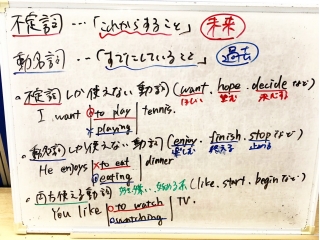 不定詞…「これからすること」 未来
動名詞…「すでにしていること」 過去
○不定詞しか使えない動詞 (want, hope, decide など)
ほしい 望む 決心する
I want ○to play tennis.
×playing
○動名詞しか使えない動詞 (enjoy, finish, stop など)
楽しむ 終える 止める
He enjoys ×to eat dinner
○eating
○両方使える動詞 好き嫌い・始める系 (like, start, begin など)
You like ○to watch TV.
○watching